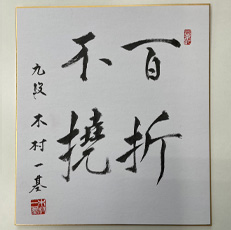 百折
不撓
九段 木村一基